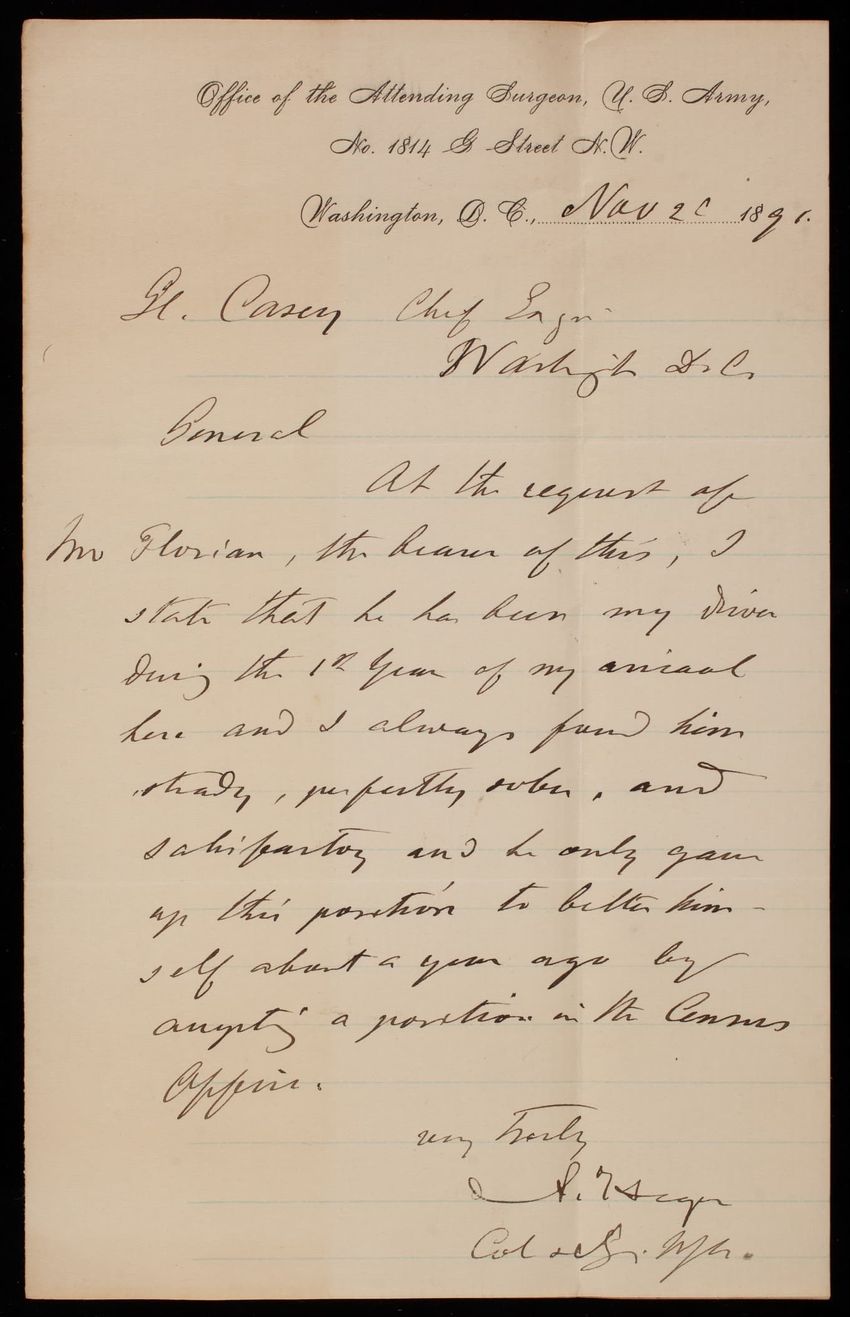 Office of the Attending Surgeon, U. S. Army,
No. 1814 G Street N. W.
Washington, D. C., Nov 1891.
Gl. Casey Chief Engr
Washington D. C.
General
At the request of
Mr Florian, the bearer of this, I
state that he has been my driver
during the 1st Year of my arrival
here and I always found him
steady, perfectly sober, and
satisfactory and he only gave
up this position to better him-
self about a year ago by
accepting a position in the Census
Office.
very truly
Col